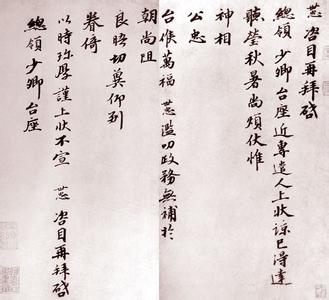 咨目再拜啓
總領少卿台座近專遣人上狀諒已得達
聽瑩秋暑尚煩伏惟
神相
公忠
台候萬福 濫叨政務無補於
朝尚阻
良晤切冀仰副
眷倚
以時珍厚謹上狀不宣 咨目再拜啓
總領少卿台座